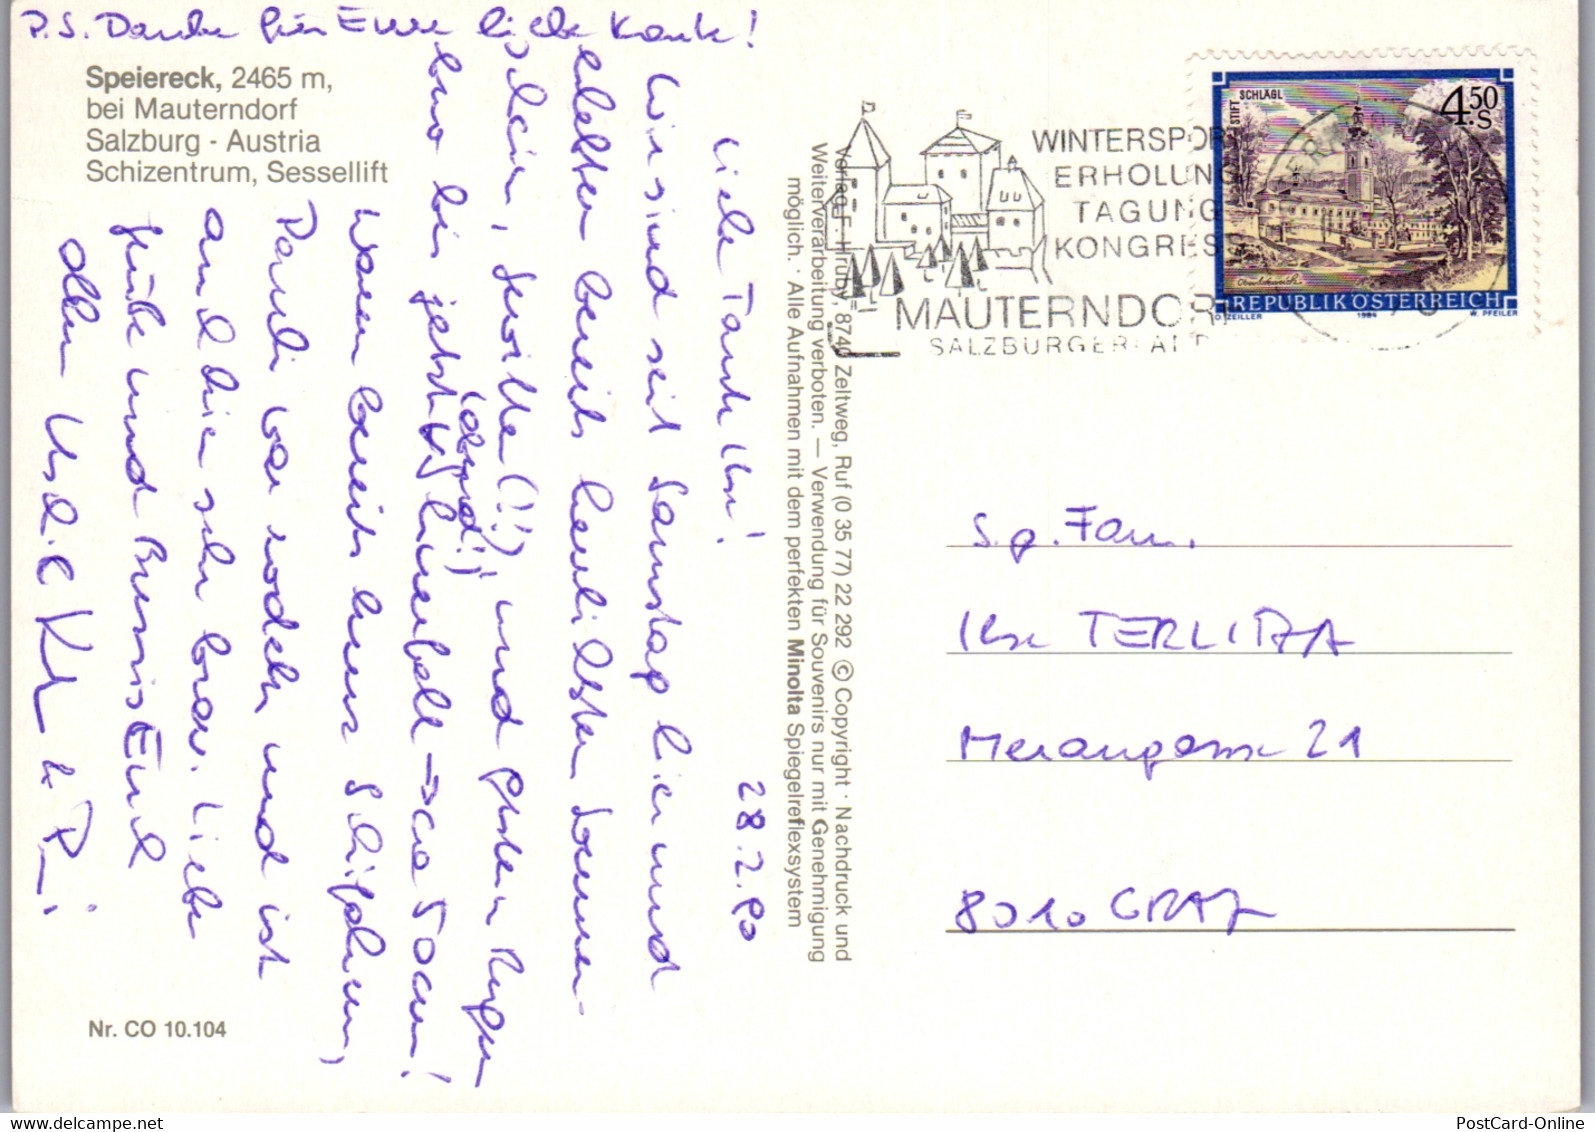 P.S. Danke für Eure liebe Karte!
Speiereck, 2465 m,
bei Mauterndorf
Salzburg - Austria
Schizentrum, Sessellift
28.2.90
Liebe Tante Ilse!
Wir sind seit Samstag hier und
erlebten bereits herrlichsten Sonnen-
schein, Gewitter (!!) und gestern Regen
bis jetzt
(abend!)
Schneefall → ca 50cm!
Waren bereits beim Schifahren,
Pauli war rodeln und ist
auch hier sehr brav. Liebe
Grüße und Bussis Euch
allen
Nr. CO 10.104
Verlag F. Hruby, 8740 Zeltweg, Ruf (0 35 77) 22 292 © Copyright · Nachdruck und
Weiterverarbeitung verboten. — Verwendung für Souvenirs nur mit Genehmigung
möglich. · Alle Aufnahmen mit dem perfekten Minolta Spiegelreflexsystem
WINTERSPORT
ERHOLUNG
TAGUNG
KONGRESS
MAUTERNDORF
SALZBURGERLAND
STIFT SCHLÄGL
4.50 S
REPUBLIK ÖSTERREICH
O. ZEILLER 1984 W. PFEILER
S.g. Fam.
Ilse TERLITZA
Merangasse 21
8010 GRAZ
PostCard-Online